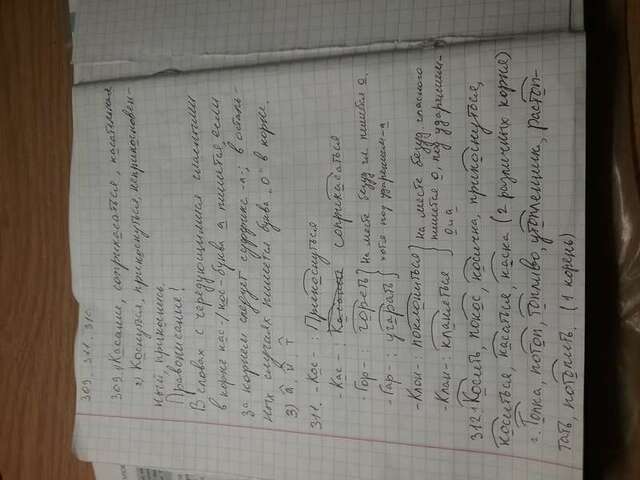 309. 311. 312
309. 1) Касание, соприкасаться, касательная
2) Коснуться, прикоснуться, неприкосновен-
ный, прикоснись.
Правописание!
В словах с чередующимися гласными
в корне кас-/кос- буква а пишется, если
за корнем следует суффикс -а-; в осталь-
ных случаях пишется буква "О" в корне.
3) а, и, т
311. -Кос- : Прикоснуться
-Кас- : соприкасаться
-Гор- : гореть } на месте безуд. гл. пишется о,
-Гар- : угарать } хотя под ударением - а
-Клон- : поклониться } на месте безуд. гласного
-Клан- : кланяться } пишется о, под ударением -
о и а
312 1 Косить, покос, косичка, прикоснуться,
коситься, касаться, каска (2 различных корня)
2. Топка, потоп, топливо, утопленник, растоп-
тать, потопить. (1 корень)